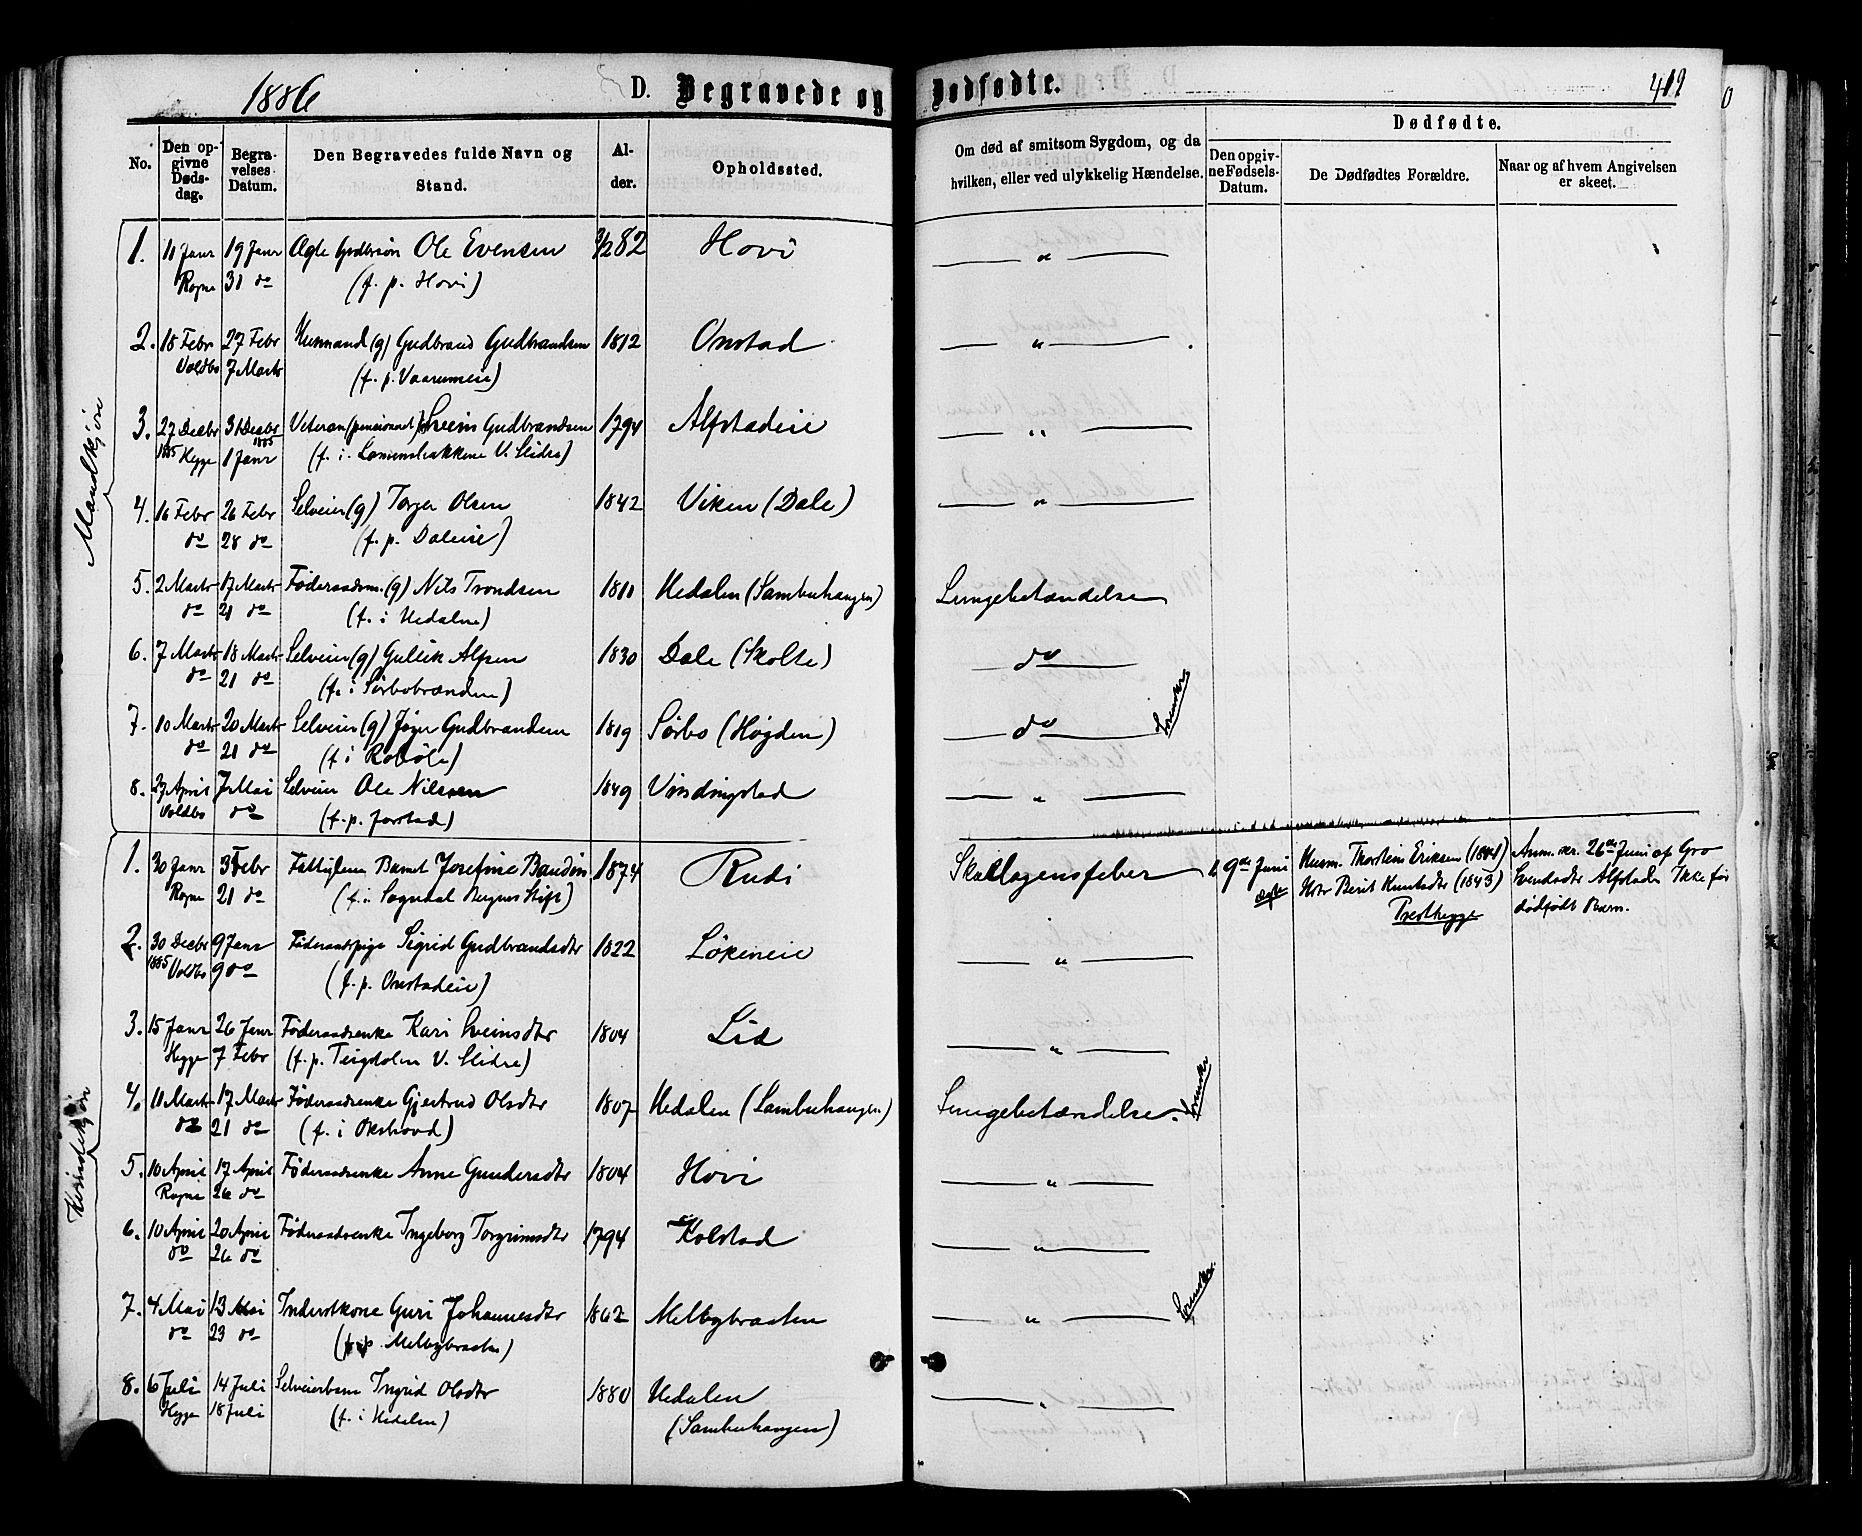 1886
D. Begravede og Dødfødte.
419
0
No.
Den opgivne Dødsdag.
Begravelses Datum.
Den Begravedes fulde Navn og Stand.
Alder.
Opholdssted.
Om død af smitsom Sygdom, og da hvilken, eller ved ulykkelig Hændelse.
Dødfødte.
Den opgivne Fødsels-Datum.
De Dødfødtes Forældre.
Naar og af hvem Angivelsen er skeet.
Mandkjön
1. 11 Janr 19 Janr Ole Evensen 82 Hovi — " —
Rogne 31 do (f. p. Hovi)
2. 18 Febr 27 Febr Husmand (g) Gudbrand Gudbrandsen 1812 Onstad — " —
Voldbo 7 Marts (f. p. Vaarumeie)
3. 27 Decbr 31 Decbr 1885 Veteran (pensioneret) Svein Gudbrandsen 1794 Alfstadeie — " —
1885 Hegge 1 Janr (f. i Lomensbakkene V. Slidre)
4. 16 Febr 26 Febr Selveier (g) Torger Olsen 1842 Viken (Dale) — " —
do 28 do (f. p. Daleie)
5. 2 Marts 17 Marts Føderaadsm. (g) Nils Trondsen 1811 Hedalen (Sambuhangen) Lungebetændelse
do 21 do (f. i Hedalen)
6. 7 Marts 18 Marts Selveier (g) Gullik Alfsen 1830 Dale (Skolte) — do —
do 21 do (f. i Sørbobrænden)
7. 10 Marts 20 Marts Selveier (g) Jøger Gudbrandsen 1819 Sørbo (Høgden) — do —
do 21 do (f. i Robøle)
8. 27 April 7 Mai Selveier Ole Nilssen 1849 Vindingstad — " —
Voldbo do (f. p. Jarstad)
Kvindekjön
1. 30 Janr 3 Febr Barnet Josefine Baudin 1874 Rudi Skarlagensfeber
Rogne 21 do (f. i Sogndal Bergens Stift)
1 9de Juni Husm. Thorstein Eriksen (1841) Anm. 26de Juni af Gro
ægte Hstr Berit Knutsdtr (1843) Svendsdtr Alfstadeie Ikke før
Presthegge dödfödt Barn.
2. 30 Decbr 9 Janr Føderaadspige Sigrid Gudbrandsdtr 1822 Løkeneie — " —
1885 Voldbo 9 do (f. p. Onstadeie)
3. 15 Janr 26 Janr Føderaadsenke Kari Sveinsdtr 1804 Lid — " —
Hegge 7 Febr (f. p. Teigdalen V. Slidre)
4. 11 Marts 17 Marts Føderaadsenke Gjertrud Olsdtr 1807 Hedalen (Sambuhangen) Lungebetændelse.
do 21 do (f. i Okshovd)
5. 10 April 17 April Føderaadsenke Anne Gundersdtr 1804 Hovi — " —
Rogne 26 do
6. 10 April 20 April Føderaadsenke Ingeborg Torgrimsdtr 1794 Kolstad — " —
do 26 do
7. 4 Mai 13 Mai Inderstkone Guri Johannesdtr 1862 Melbybraaten — " —
do 23 do (f. p. Melbybraaten)
8. 6 Juli 14 Juli Selveierbarn Ingrid Olsdtr 1880 Hedalen — " —
Hegge 18 Juli (f. i Hedalen) (Sambuhangen)